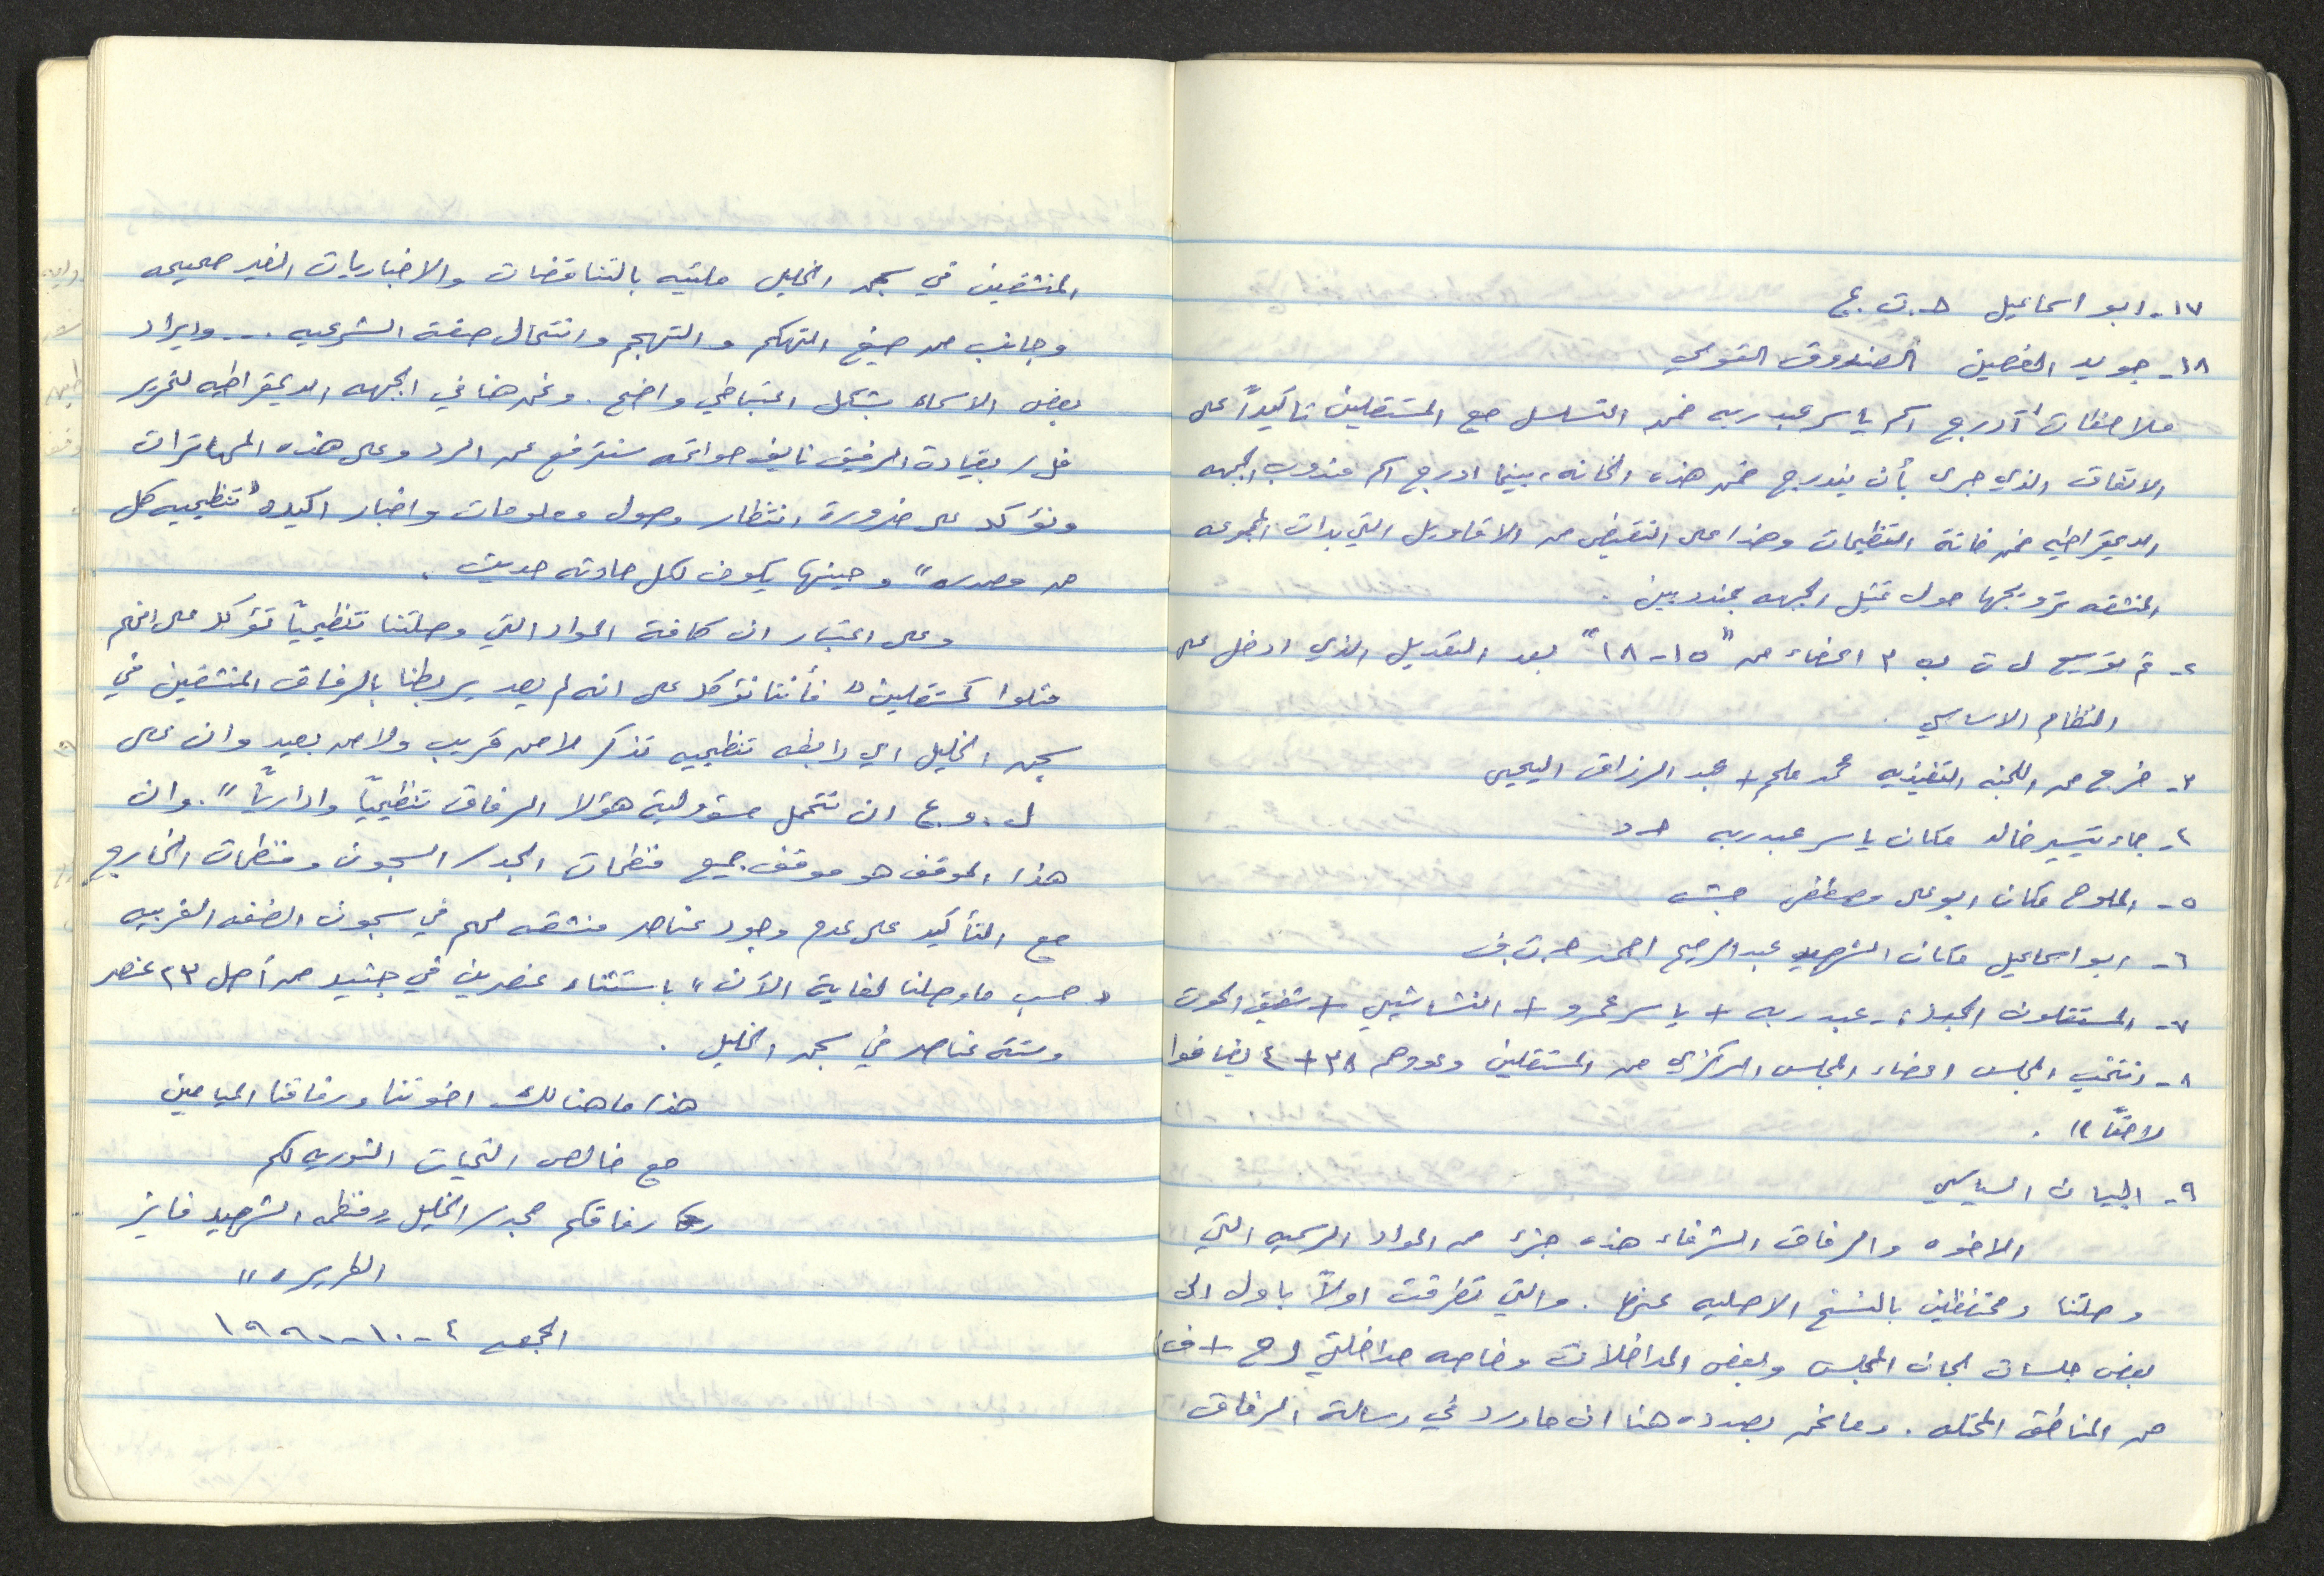 ١٧- ابو اسماعيل ج.ت.ع
١٨- جويد الغصين الصندوق القومي
ملاحظات ١ أدرج اسم ياسر عبد ربه ضمن التسلسل مع المستقلين تاكيداً على
الاتفاق الذي جرى بأن يندرج ضمن هذه الخانه، بينما ادرج اسم مندوب الجبهه
الديمقراطيه ضمن خانة التنظيمات وهذا على النقيض من الاقاويل التي بدات المجموعه
المنشقه ترويجها حول تمثيل الجبهه بمندوبين.
٢- تم توسيع ل ت ب ٣ اعضاء من "١٥-١٨" بعد التعديل الذي ادخل على
النظام الاساسي
٣- خرج من اللجنه التنفيذيه محمد ملحم + عبد الرزاق اليحيى
٤- جاء تيسير خالد مكان ياسر عبد ربه ج د
٥- الملوح مكان ابو على مصطفى ج ش
٦- ابو اسماعيل مكان الشهيد عبد الرحيم احمد ج.ت.ف
٧- المستقلون الجدد:- عبد ربه + ياسر عمرو + النشاشيبي + شفيق الحوت
٨- انتخب المجلس اعضاء المجلس المركزي من المستقلين وعددهم ٣٨ + ٤ يضافوا
لاحقاً ".
٩- البيان السياسي
الاخوه والرفاق الشرفاء هذه جزء من المواد الرسميه التي
وصلتنا ومحتفظين بالنسخ الاصليه عنها. والتي تطرقت اولاً باول الى
بعض جلسات لجان المجلس وبعض المداخلات وخاصه مداخلتي (ح + ف)
من المناطق المحتله. وما نحن بصدده هنا ان ما ورد في رسالة الرفاق
المنشقين في سجن الخليل مليئه بالتناقضات والاخباريات الغير صحيحه
وجانب من صيغ التهكم والتهجم وانتحال صفة الشرعيه ... وايراد
بعض الاسماء بشكل اعتباطي واضح. ونحن هنا في الجبهه الديمقراطيه لتحرير
فل/ بقيادة الرفيق نايف حواتمه سنترفع عن الرد وعلى هذه المهاترات
ونؤكد على ضرورة انتظار وصول معلومات واخبار اكيده "تنظيميه كل
من مصدره" وحينها يكون لكل حادثه حديث.
وعلى اعتبار ان كافة المواد التي وصلتنا تنظيمياً تؤكد على انهم
مثلوا كمستقلين" فأننا نؤكد على انه لم يعد يربطنا بالرفاق المنشقين في
سجن الخليل اي رابطه تنظيميه تذكر لا من قريب ولا من بعيد وان على
ل.و.ع ان تتحمل مسؤولية هؤلا الرفاق تنظيمياً وادارياً". وان
هذا الموقف هو موقف جميع منظمات الجد/ السجون ومنظمات الخارج
مع التأكيد على عدم وجود عناصر منشقه لهم في سجون الضفه الغربيه
"حسب ما وصلنا لغاية الآن" باستثناء عنصرين في جنيد من أصل ٢٣ عنصر
وستة عناصر في سجن الخليل.
هذا ما هنالك اخوتنا ورفاقنا الميامين
مع خالص التحيات الثوريه لكم
رفاقكم مجد/ الخليل "منظمه الشهيد فايز
"
الجمعه ٤-١٠-١٩٩١